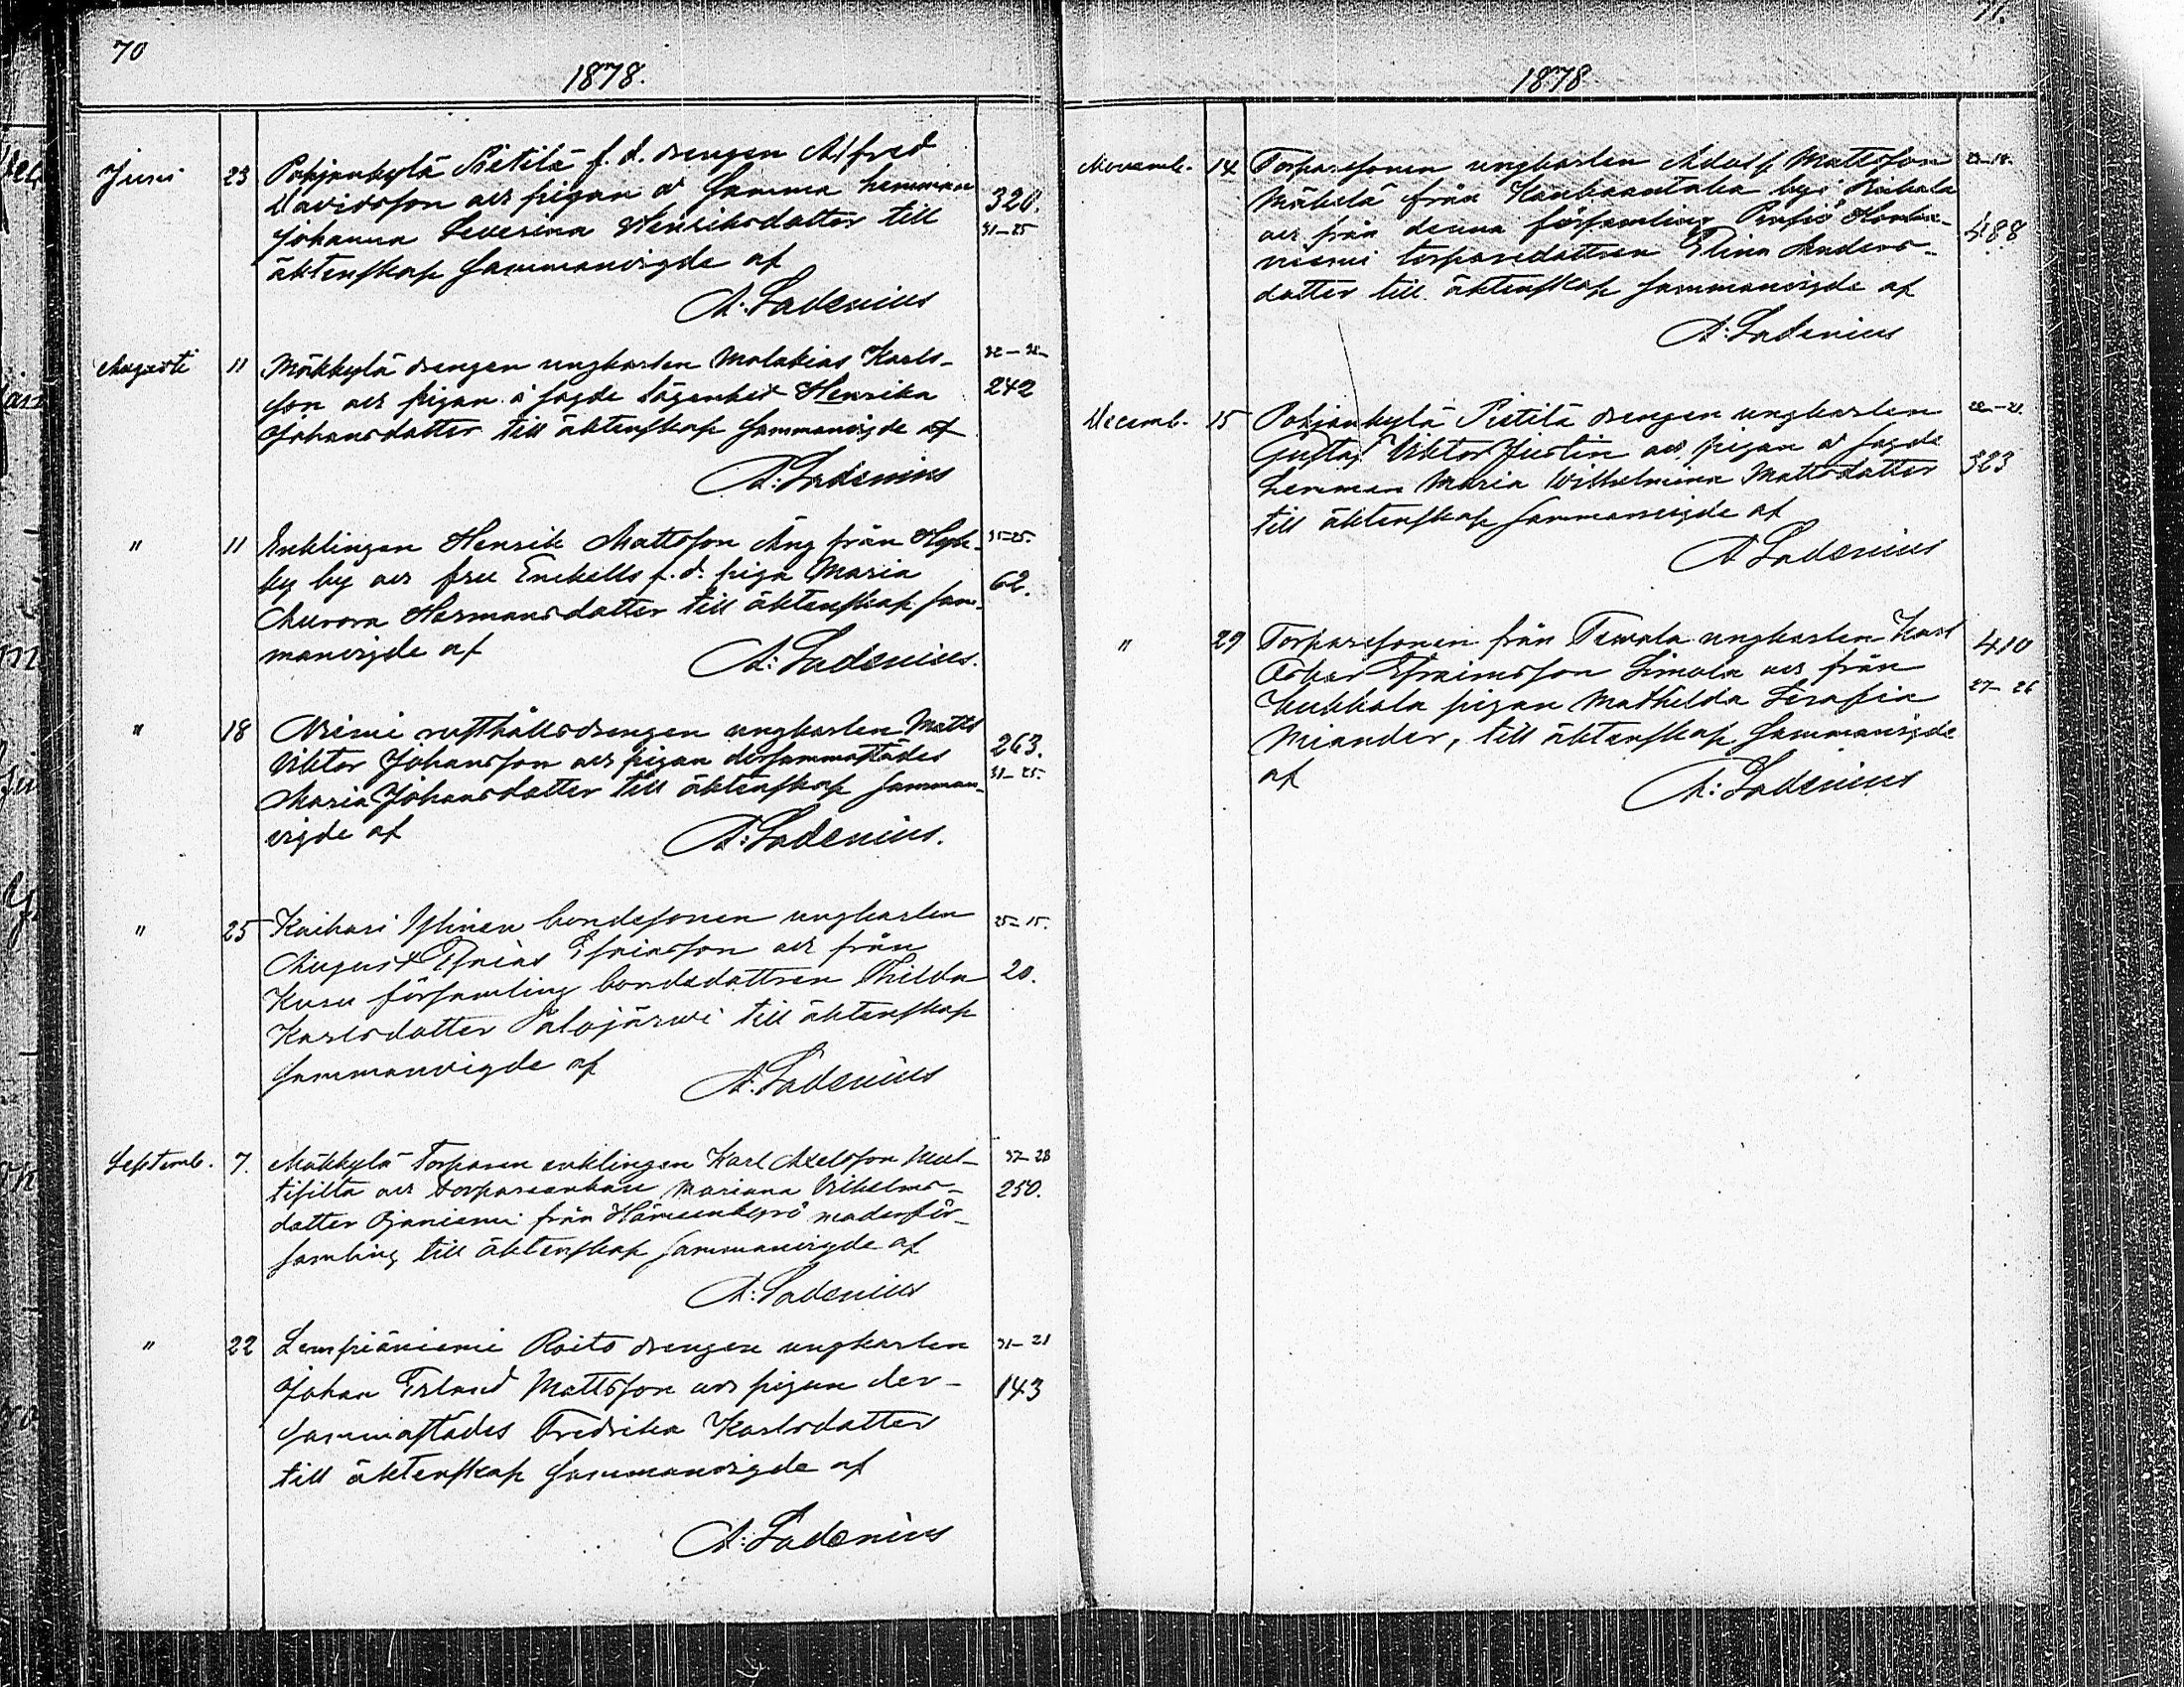 70
1878.
Juni 23 Pohjankylä Pietilä f. d. drengen Alfred
Davidsson och pigan å samma hemman 320.
Johanna Severina Henriksdotter till 31-25
äktenskap sammanvigde af
A. Ladenius
Augusti 11 Mäkkylä drengen ungkarlen Malakias Karls-
son och pigan å sagde lägenhet Henrika 242
Johansdotter till äktenskap sammanvigde af
A: Ladenius
" 11 Enklingen Henrik Mattsson Äng från
by och fru Enckells f. d. piga Maria 62.
Aurora Hermansdotter till äktenskap sam-
manvigde af A: Ladenius.
" 18 Niemi rusthållsdrengen ungkarlen Matts
Viktor Johansson och pigan dersammastädes 263.
Maria Johansdotter till äktenskap samman- 31-25.
vigde af A: Ladenius.
" 25 Kaihari Ylinen bondesonen ungkarlen 25-15.
August Esaias Esaiasson och från
Kuru församling bondedottren Hilda 20.
Karlsdotter Palojärwi till äktenskap
sammanvigde af A: Ladenius
Septemb. 7. Mäkkylä Torparen enklingen Karl Axelsson 37-28
och torpareenkan Mariana Vilhelms- 250.
dotter Ojaniemi från Hämeenkyrö moderför-
samling till äktenskap sammanvigde af
A: Ladenius
" 22 Lempiäniemi Roito drengen ungkarlen 31-21
Johan Erland Mattsson och pigan der- 143
sammastädes Fredrika Karlsdotter
till äktenskap sammanvigde af
A: Ladenius
71.
1878
Novemb. 14 Torparesonen ungkarlen Adolf Mattsson
Mäkelä från by i
och från denna församling 488
niemi torparedottren Elina Anders-
dotter till äktenskap sammanvigde af
A: Ladenius
Decemb. 15 Pohjankylä Pietilä drengen ungkarlen
Gustaf Viktor Justin och pigan å sagde
hemman Maria Wilhelmina Mattsdotter 323
till äktenskap sammanvigde af
A Ladenius
" 29 Torparesonen från Tewala ungkarlen Karl 410
Oskar Efraimsson Simola och från
Kukkola pigan Mathilda Serafia 27-26
Miander, till äktenskap sammanvigde
af A: Ladenius